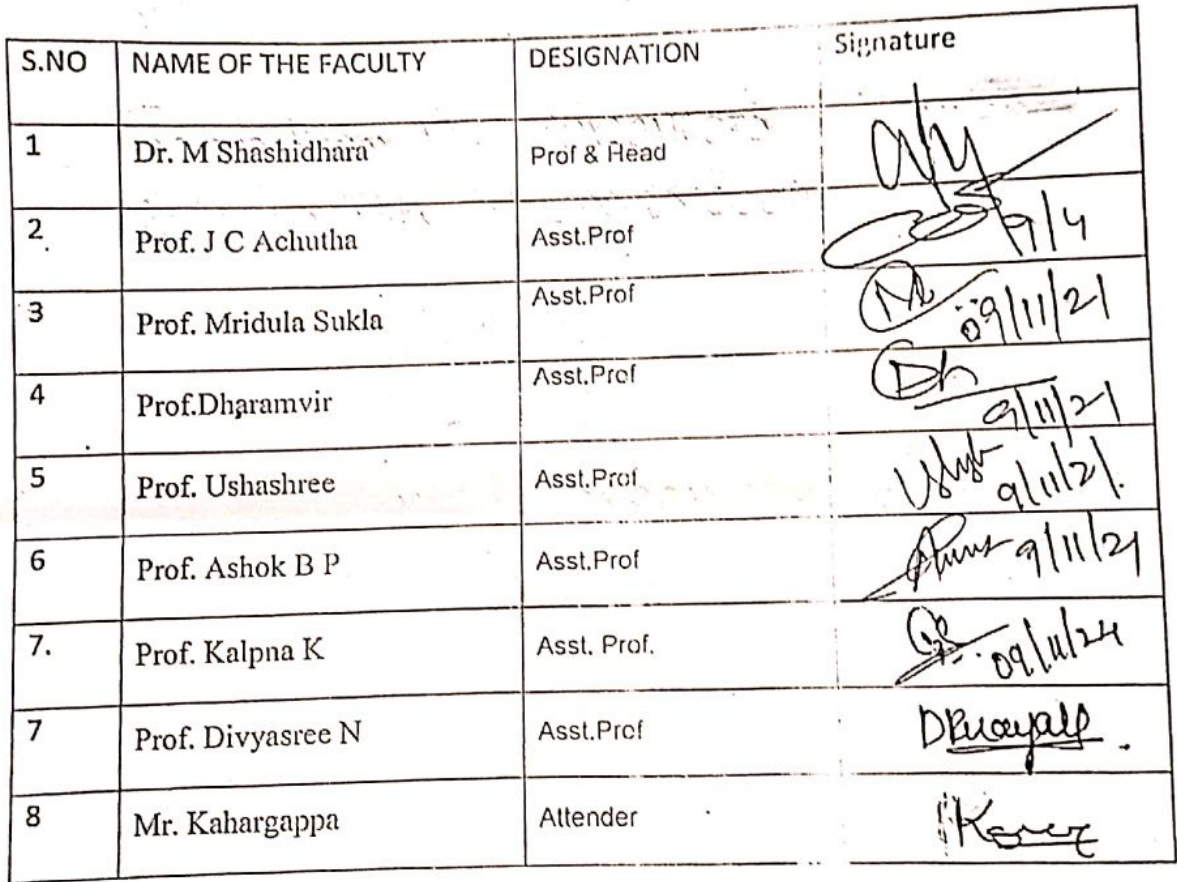 S.NO NAME OF THE FACULTY DESIGNATION Signature
1 Dr. M Shashidhara Prof & Head
2. Prof. J C Achutha Asst.Prof 9/4
3 Prof. Mridula Sukla Asst.Prof 09/11/21
4 Prof.Dharamvir Asst.Prof Dh 9/11/21
5 Prof. Ushashree Asst.Prof 9/11/21.
6 Prof. Ashok B P Asst.Prof 9/11/21
7. Prof. Kalpna K Asst. Prof. 09/11/24
7 Prof. Divyasree N Asst.Prof
8 Mr. Kahargappa Attender